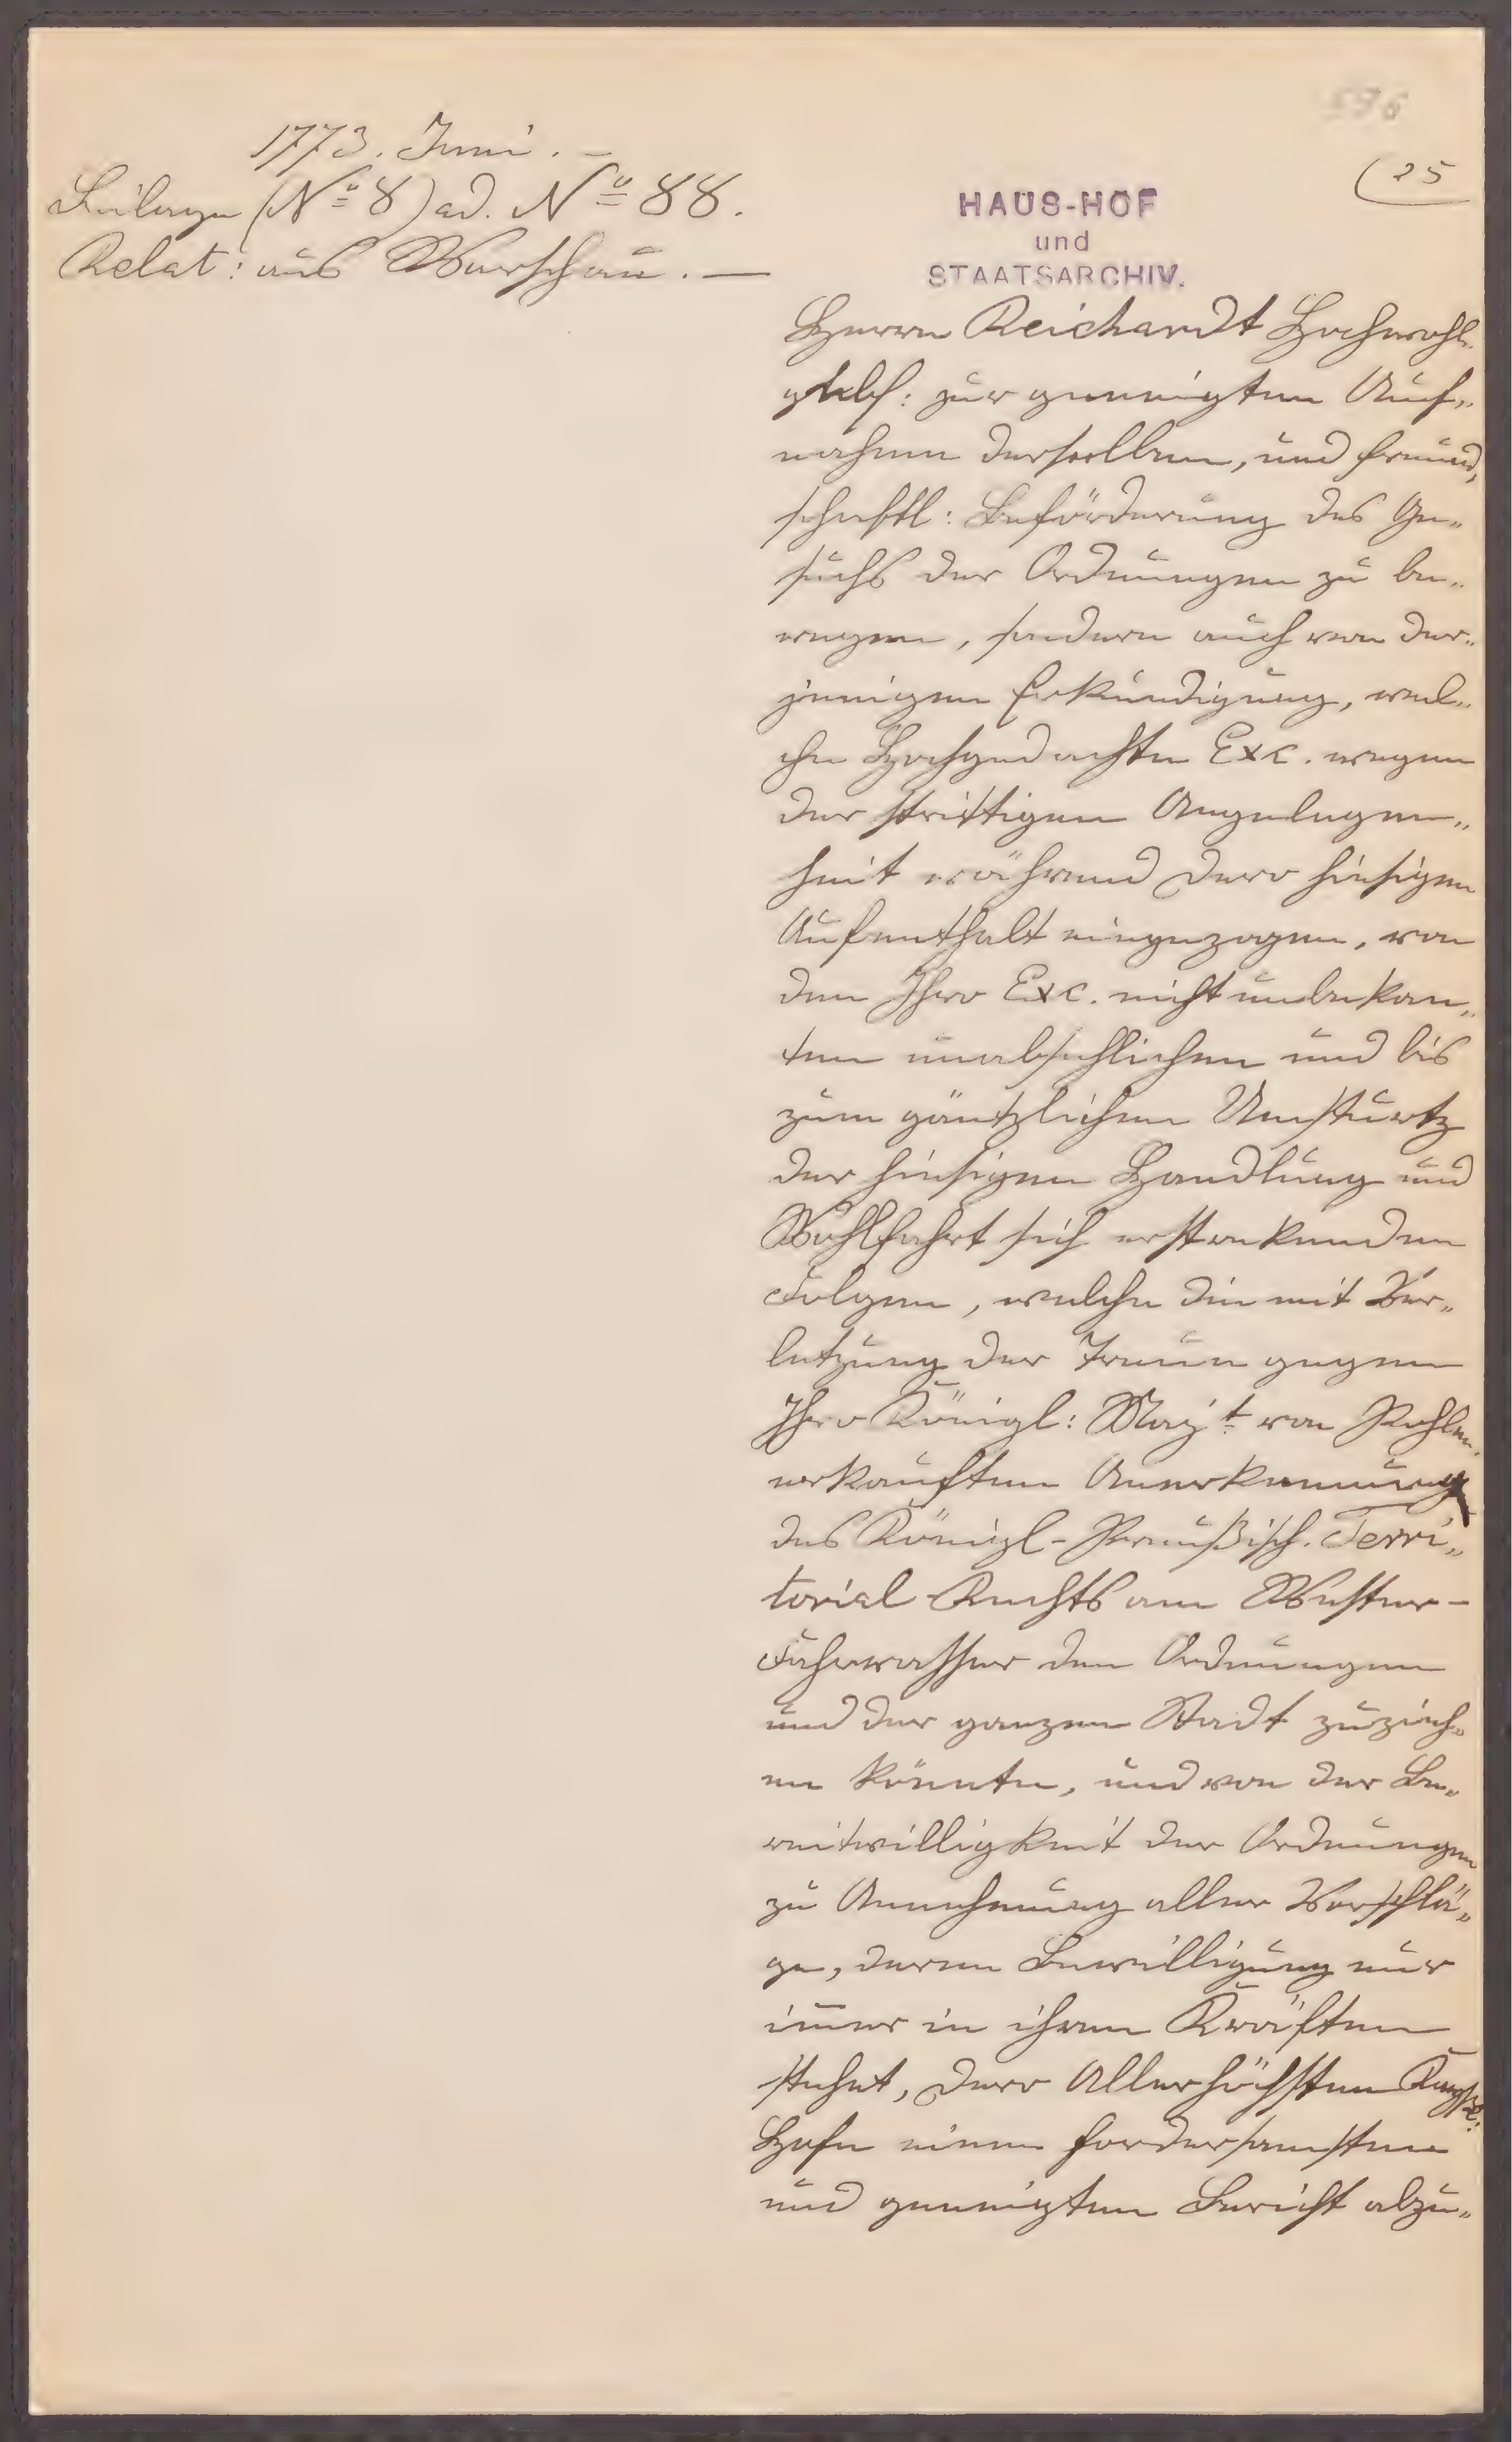 596
(25
1773. Juni. —
Beilage (No 8) ad. No 88.
Relat: aus Warschau. —
HAUS-HOF
und
STAATSARCHIV.
Herrn Reichardt Hochwohl-
gebh: zur geneigten Auf„
nahme derselben, und freund„
schaftl: Beförderung des Ge„
suchs der Ordnungen zu be„
wegen, sondern auch von der„
jenigen Erkundigung, wel„
che Hochgedachte Exc. wegen
der strittigen Angelegen„
heit während dero hiesigen
Aufenthalt eingezogen, von
den Ihro Exc. nicht unbekan„
ten unabsehlichen und bis
zum gäntzlichen Umsturtz
der hiesigen Handlung und
Wohlfahrt sich erstrekenden
Folgen, welche die mit Ver„
letzung der Treue gegen
Ihro Königl: Majt von Pohlen
erkauften Anerkennung
des Königl-Preußisch. Terri„
torial-Rechts am Wester-
Fahrwasser den Ordnungen
und der ganzen Stadt zuzieh„
en könnte, und von der Be„
reitwilligkeit der Ordnungen
zu Annehmung aller Vorschlä„
ge, deren Bewilligung nur
imer in ihren Kräften
stehet, Dero Allerhöchsten
Hofe einen fordersamsten
und geneigten Bericht abzu„